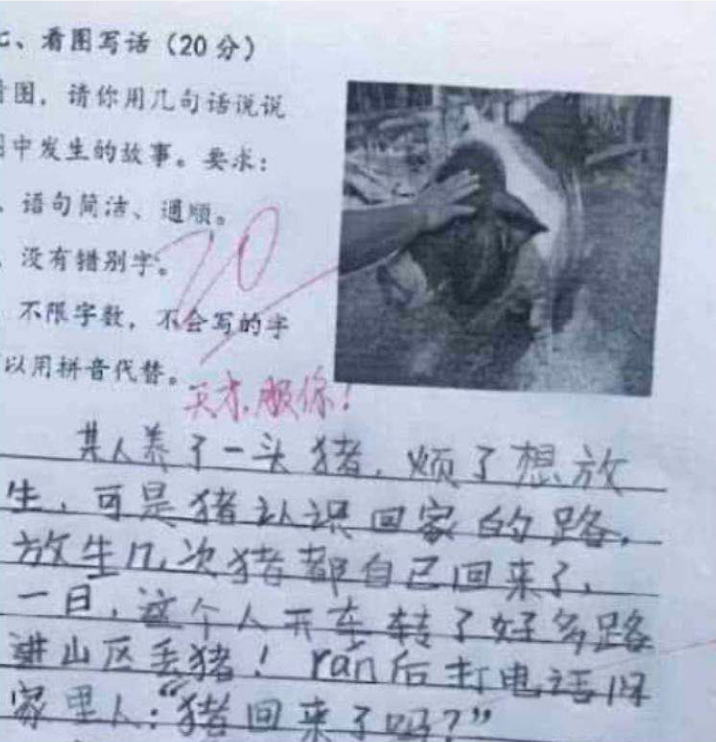 七、看图写话（20分）
看图，请你用几句话说说
图中发生的故事。要求：
、语句简洁、通顺。
、没有错别字。
不限字数，不会写的字
以用拼音代替。
20
天才，服你！
某人养了一头猪，烦了想放
生，可是猪认识回家的路，
放生几次猪都自己回来了，
一日，这个人开车转了好多路
进山区丢猪！rán后打电话问
家里人：“猪回来了吗？”